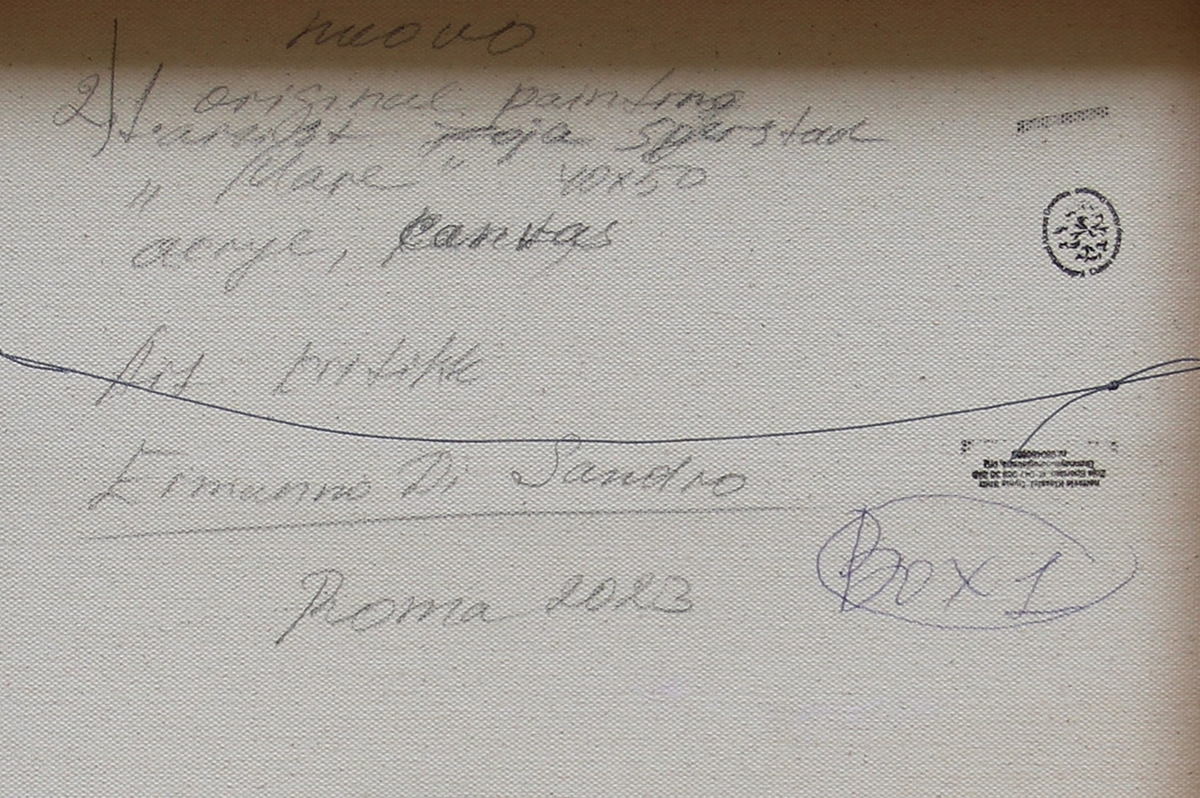 nuovo
2) 1 original painting
Zoja Sperstad
" Mare " 40x50
acryl, canvas
Art kritikk
Ermanno Di Sandro
Roma 2023
Box 1